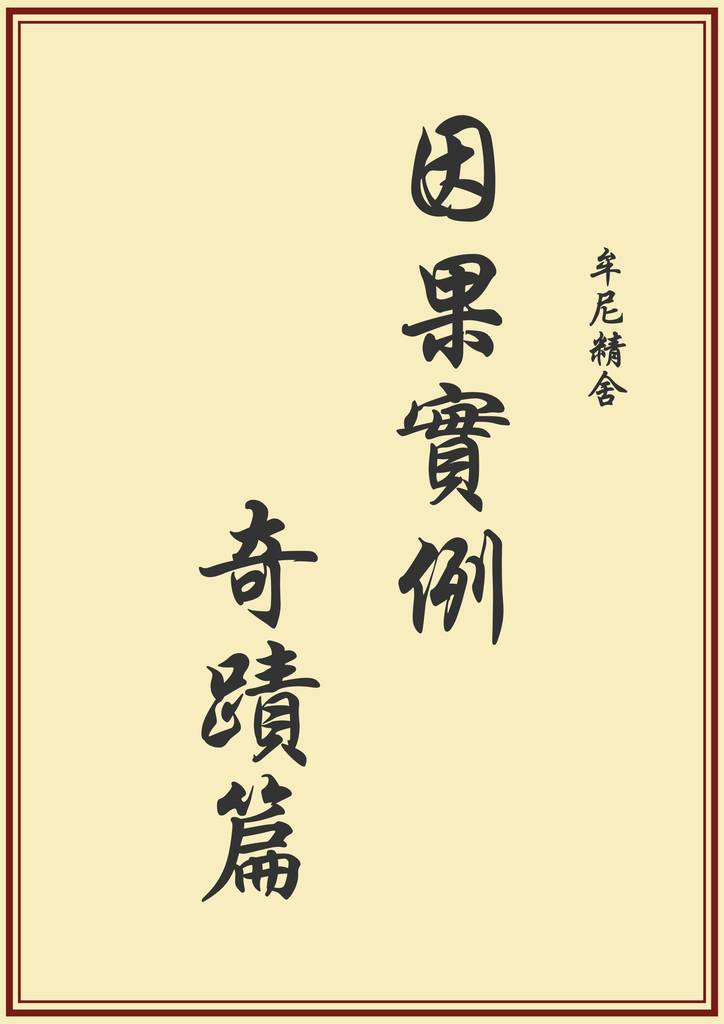 牟尼精舍
因果實例
奇蹟篇